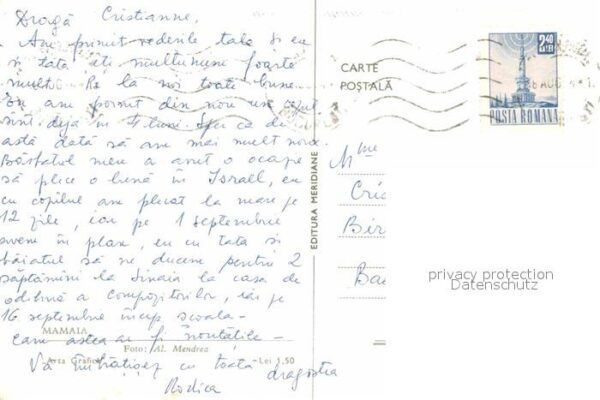 Dragă Cristianne,
Am primit vederile tale și eu
și tata îți mulțumim foarte
mult. Pe la noi toate bune.
Eu am pornit din nou
sînt deja în 4 luni. Sper ca de
astă dată să am mai mult noroc.
Bărbatul meu a avut o ocazie
să plece o lună în Israel, eu
cu copilul am plecat la mare pe
12 zile, iar pe 1 septembrie
avem în plan, eu cu tata și
băiatul să ne ducem pentru 2
săptămîni la Sinaia la casa de
odihnă a compozitorilor, iar pe
16 septembrie încep școala -
cam astea ar fi noutățile -
Vă îmbrățișez cu toată dragostea
Rodica
MAMAIA
Foto: Al. Mendrea
Arta Grafică
Lei 1,50
EDITURA MERIDIANE
CARTE
POȘTALĂ
2,40
LEI
POSTA ROMANA
AUG
Mme
Cris
Bd
privacy protection
Datenschutz